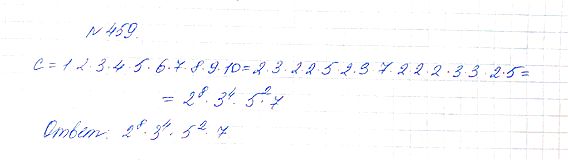 № 459.
C = 1·2·3·4·5·6·7·8·9·10 = 2·3·2·2·5·2·3·7·2·2·2·3·3·2·5 =
= 2⁸·3⁴·5²·7
Ответ: 2⁸·3⁴·5²·7